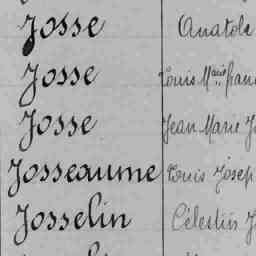 Josse Anatole
Josse Louis Marie fran
Josse Jean Marie J
Josseaume Louis Josep
Josselin Célestin J